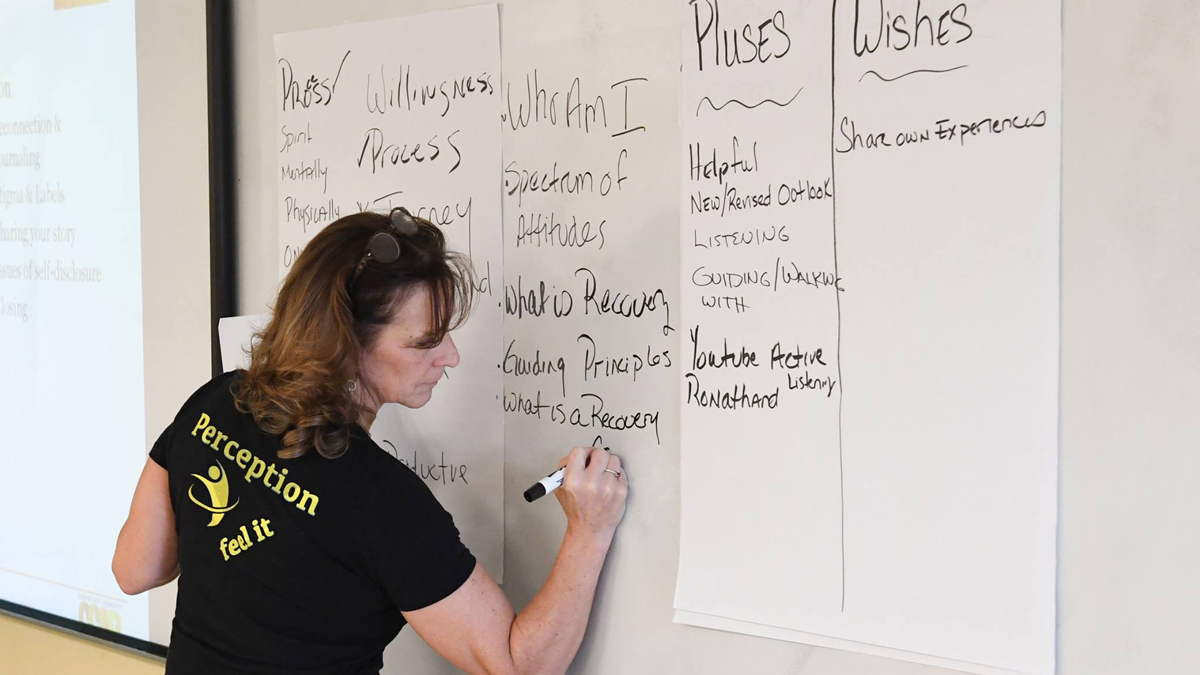 on
econnection &
ournaling
tigma & Labels
haring your story
ssues of self-disclosure
losing
Spirit
Mentally
Physically
Willingness
Process
Who Am I
Spectrum of
Attitudes
What is Recovery
Guiding Principles
What is a Recovery
Pluses
Helpful
New/Revised Outlook
Listening
Guiding/Walking
With
Youtube Active
Listening
Wishes
Share own Experiences
Perception
feel it